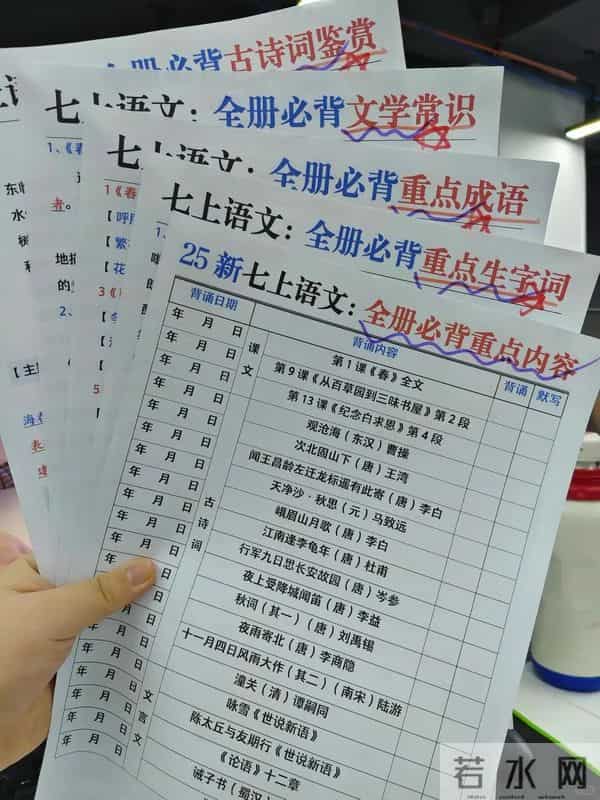 全册必背古诗词鉴赏
七上语文：全册必背文学常识
1、《春
者。
地
的
2、
【主
七上语文：全册必背重点成语
1《春
【呼
【繁
花
3《
5
七上语文：全册必背重点生字词
25新七上语文：全册必背重点内容
背诵日期 背诵内容 背诵 默写
年 月 日 课文 第1课《春》全文
年 月 日 第9课《从百草园到三味书屋》第2段
年 月 日 第13课《纪念白求恩》第4段
年 月 日 古诗词 观沧海（东汉）曹操
年 月 日 次北固山下（唐）王湾
年 月 日 闻王昌龄左迁龙标遥有此寄（唐）李白
年 月 日 天净沙·秋思（元）马致远
年 月 日 峨眉山月歌（唐）李白
年 月 日 江南逢李龟年（唐）杜甫
年 月 日 行军九日思长安故园（唐）岑参
年 月 日 夜上受降城闻笛（唐）李益
年 月 日 秋词（其一）（唐）刘禹锡
年 月 日 夜雨寄北（唐）李商隐
年 月 日 十一月四日风雨大作（其二）（南宋）陆游
年 月 日 潼关（清）谭嗣同
年 月 日 文言文 咏雪《世说新语》
年 月 日 陈太丘与友期行《世说新语》
年 月 日 《论语》十二章
年 月 日 诫子书（蜀汉）
若水网